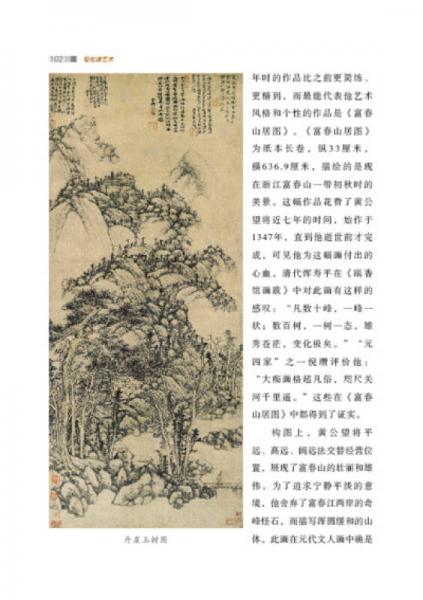 102
年时的作品比之前更简练、
更精到，而最能代表他艺术
风格和个性的作品是《富春
山居图》。《富春山居图》
为纸本长卷，纵33厘米，
横636.9厘米，描绘的是现
在浙江富春山一带初秋时的
美景。这幅作品花费了黄公
望将近七年的时间，始作于
1347年，直到他逝世前才完
成，可见他为这幅画付出的
心血。清代恽寿平在《瓯香
馆画跋》中对此画有这样的
感叹：“凡数十峰，一峰一
状；数百树，一树一态，雄
秀苍茫，变化极矣。”“元
四家”之一倪瓒评价他：
“大痴画格超凡俗，咫尺关
河千里遥。”这些在《富春
山居图》中都得到了证实。
构图上，黄公望将平
远、高远、阔远法交替经营位
置，展现了富春山的壮丽和雄
伟。为了追求宁静平淡的意
境，他舍弃了富春江两岸的奇
峰怪石，而描写浑圆缓和的山
体。此画在元代文人画中确是
丹崖玉树图